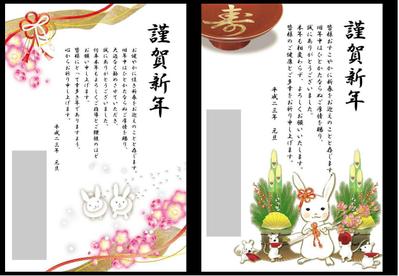 謹賀新年
お健やかに佳き新春をお迎えのことと存じます。
旧年中はひとかたならぬご厚情を賜り、
誠にありがとうございました。
お願い申し上げます。
心からお祈り申し上げます。
平成二三年　元旦
寿
謹賀新年
皆様おすこやかに新春をお迎えのことと存じます。
旧年中はひとかたならぬご厚情を賜り、
誠にありがとうございました。
本年も相変わらず、よろしくお願いいたします。
皆様のご健康とご多幸をお祈り申し上げます。
平成二三年　元旦